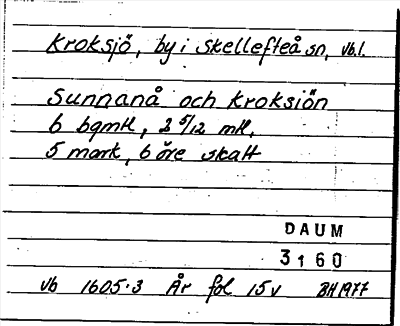 Kroksjö, by i Skellefteå sn, Vb.l.
Sunnanå och Kroksiön
6 bgmtl, 2 5/12 mtl,
5 mark, 6 öre skatt
DAUM
3160
Vb 1605:3 År fol 15v BH 1977